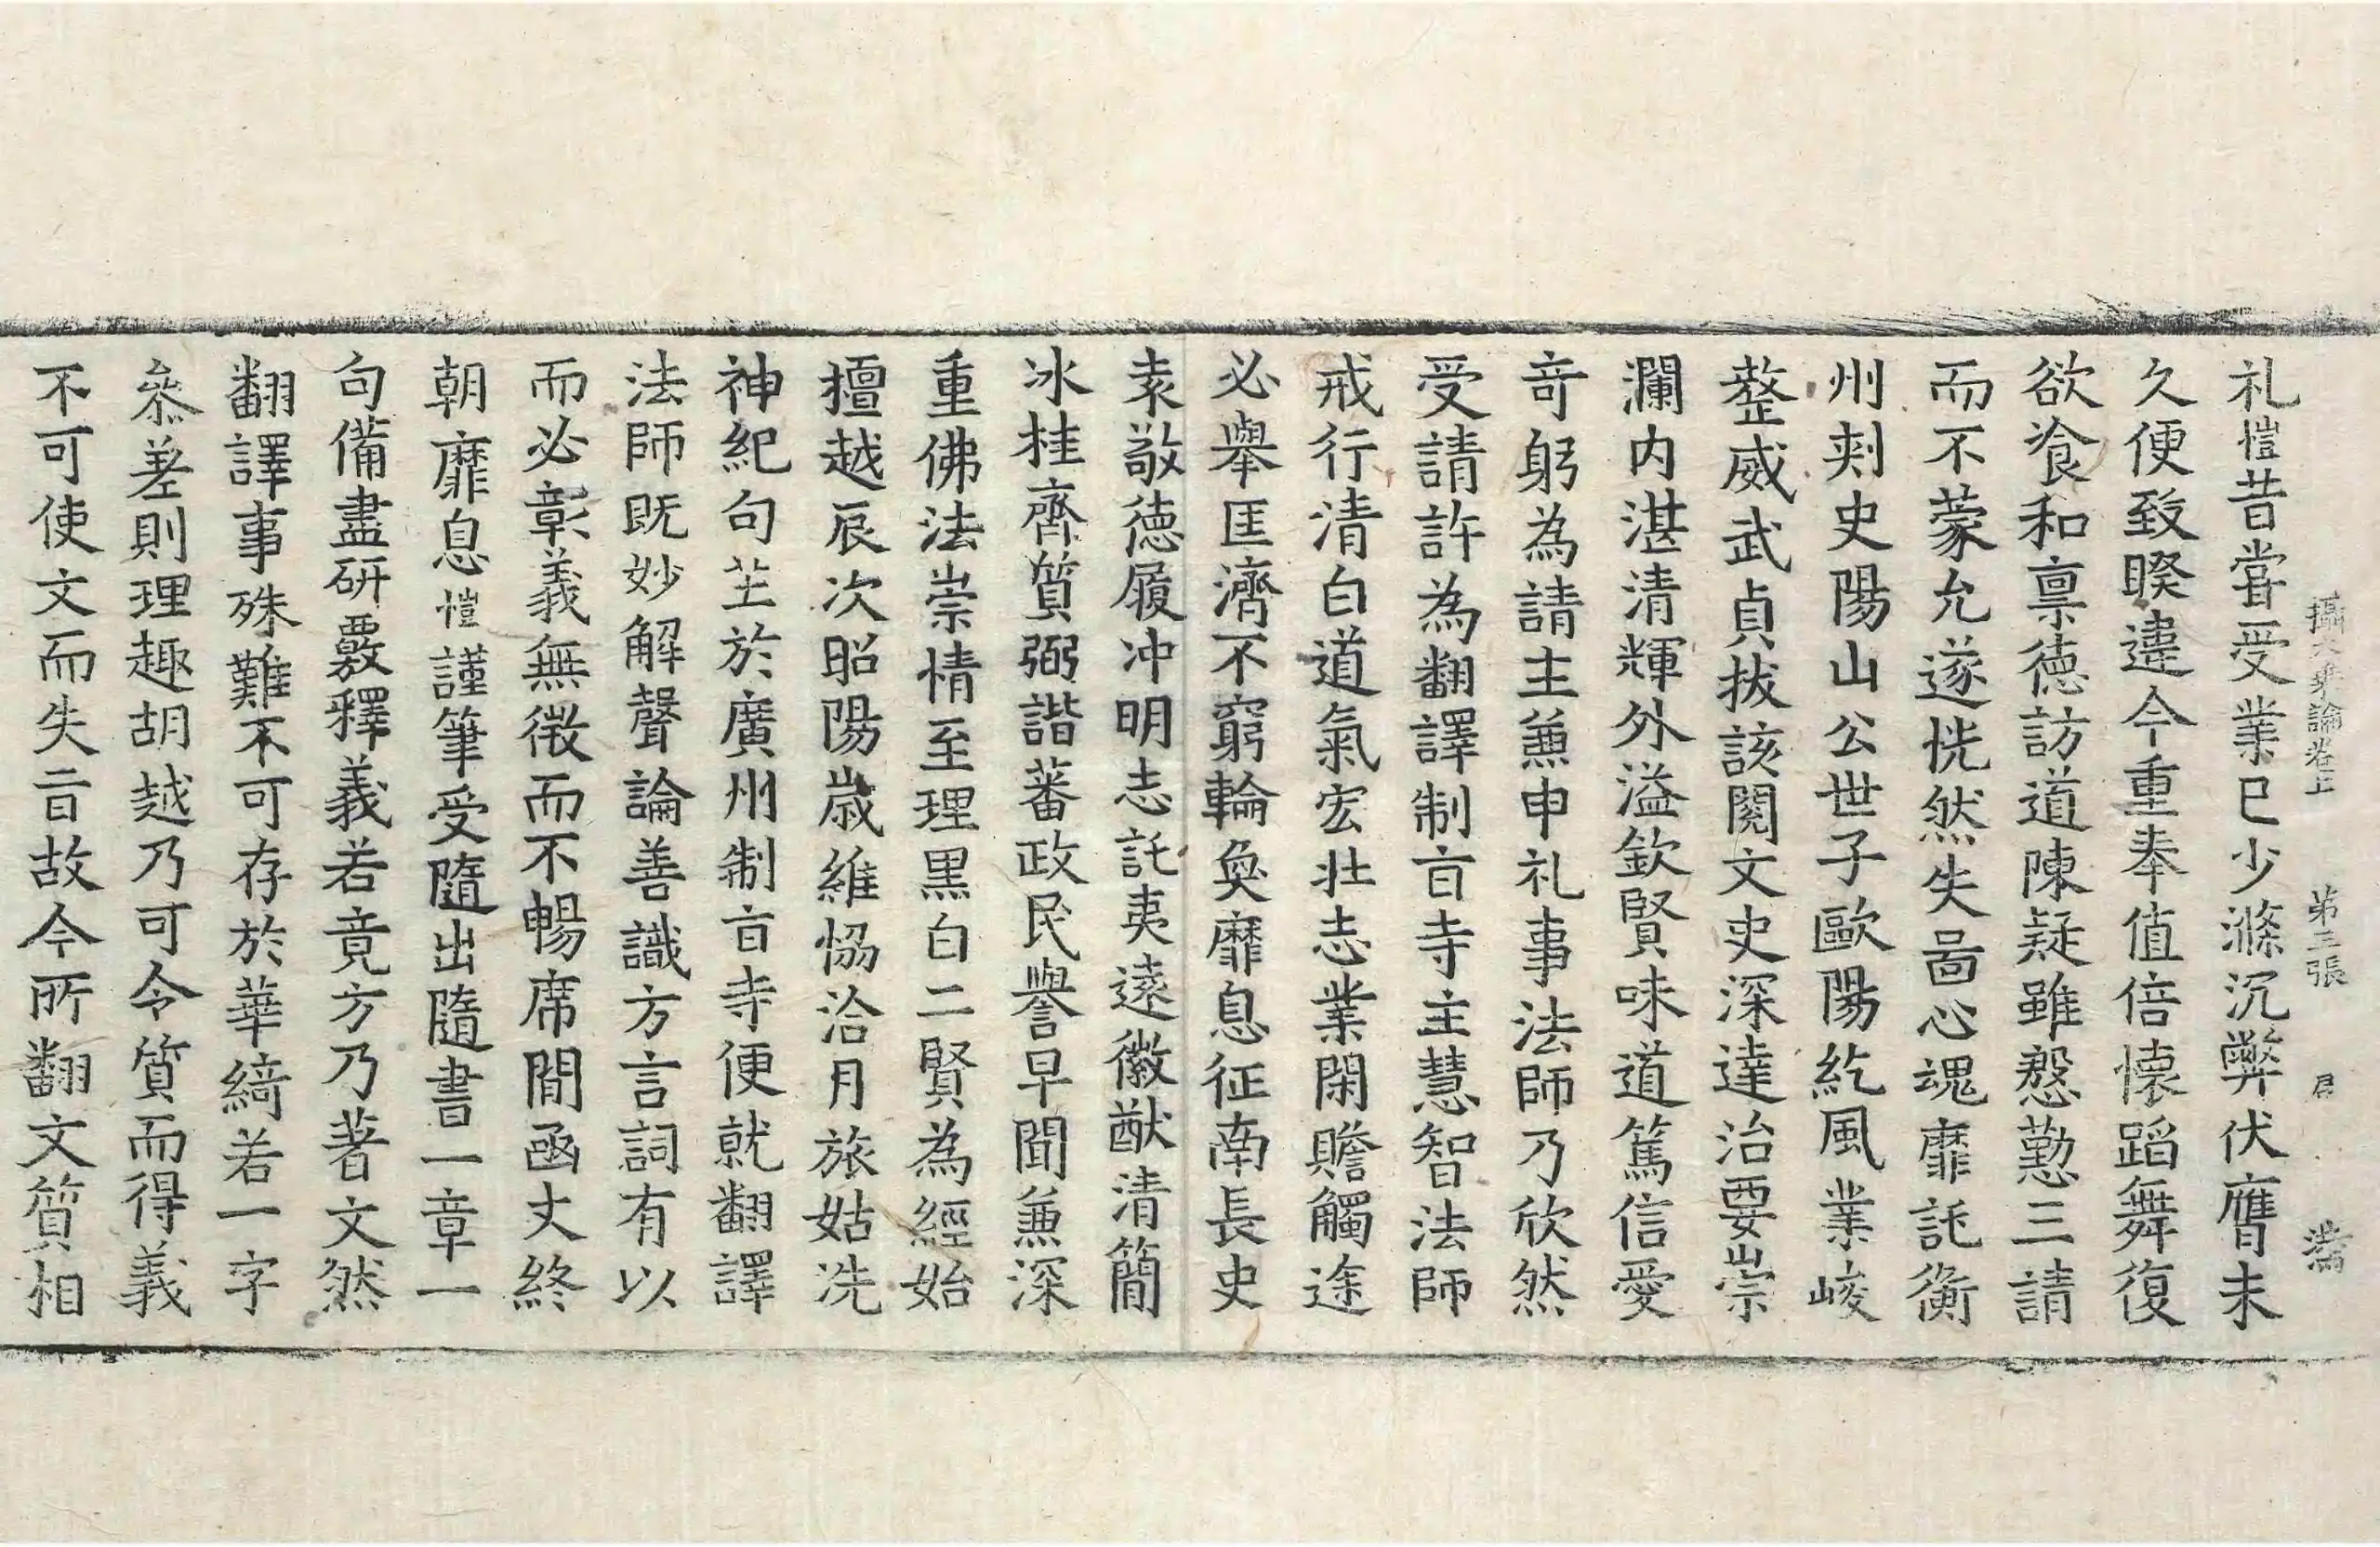 攝大乗論卷上 第三張 君 𭰖
礼愷昔嘗受業已少滌沉弊伏膺未
久便致睽違今重奉值倍懷蹈舞復
欲飡和禀德訪道陳疑雖慇懃三請
而不蒙允遂恍然失啚心魂靡託衡
州刾史陽山公世子歐陽紇風業峻
整威武貞拔該閱文史深達治要崇
瀾内湛清輝外溢欽賢味道篤信愛
竒躬為請主兼申礼事法師乃欣然
受請許為翻譯制㫖寺主慧智法師
戒行清白道氣宏壮志業閑贍觸途
必舉匡濟不窮輪奐靡息征南長史
袁敬德履冲明志託夷遠徽猷清簡
冰桂齊質弼諧蕃政民譽早聞兼深
重佛法崇情至理黒白二賢為經始
擅越辰次昭陽歳維恊洽月旅姑洗
神紀句芒於廣州制㫖寺便就翻譯
法師既妙解聲論善識方言詞有以
而必彰義無微而不暢席間函丈終
朝靡息愷謹筆受隨出隨書一章一
句備盡研覈釋義若竟方乃著文然
翻譯事殊難不可存於華綺若一字
叅差則理趣胡越乃可令質而得義
不可使文而失㫖故今所翻文質相